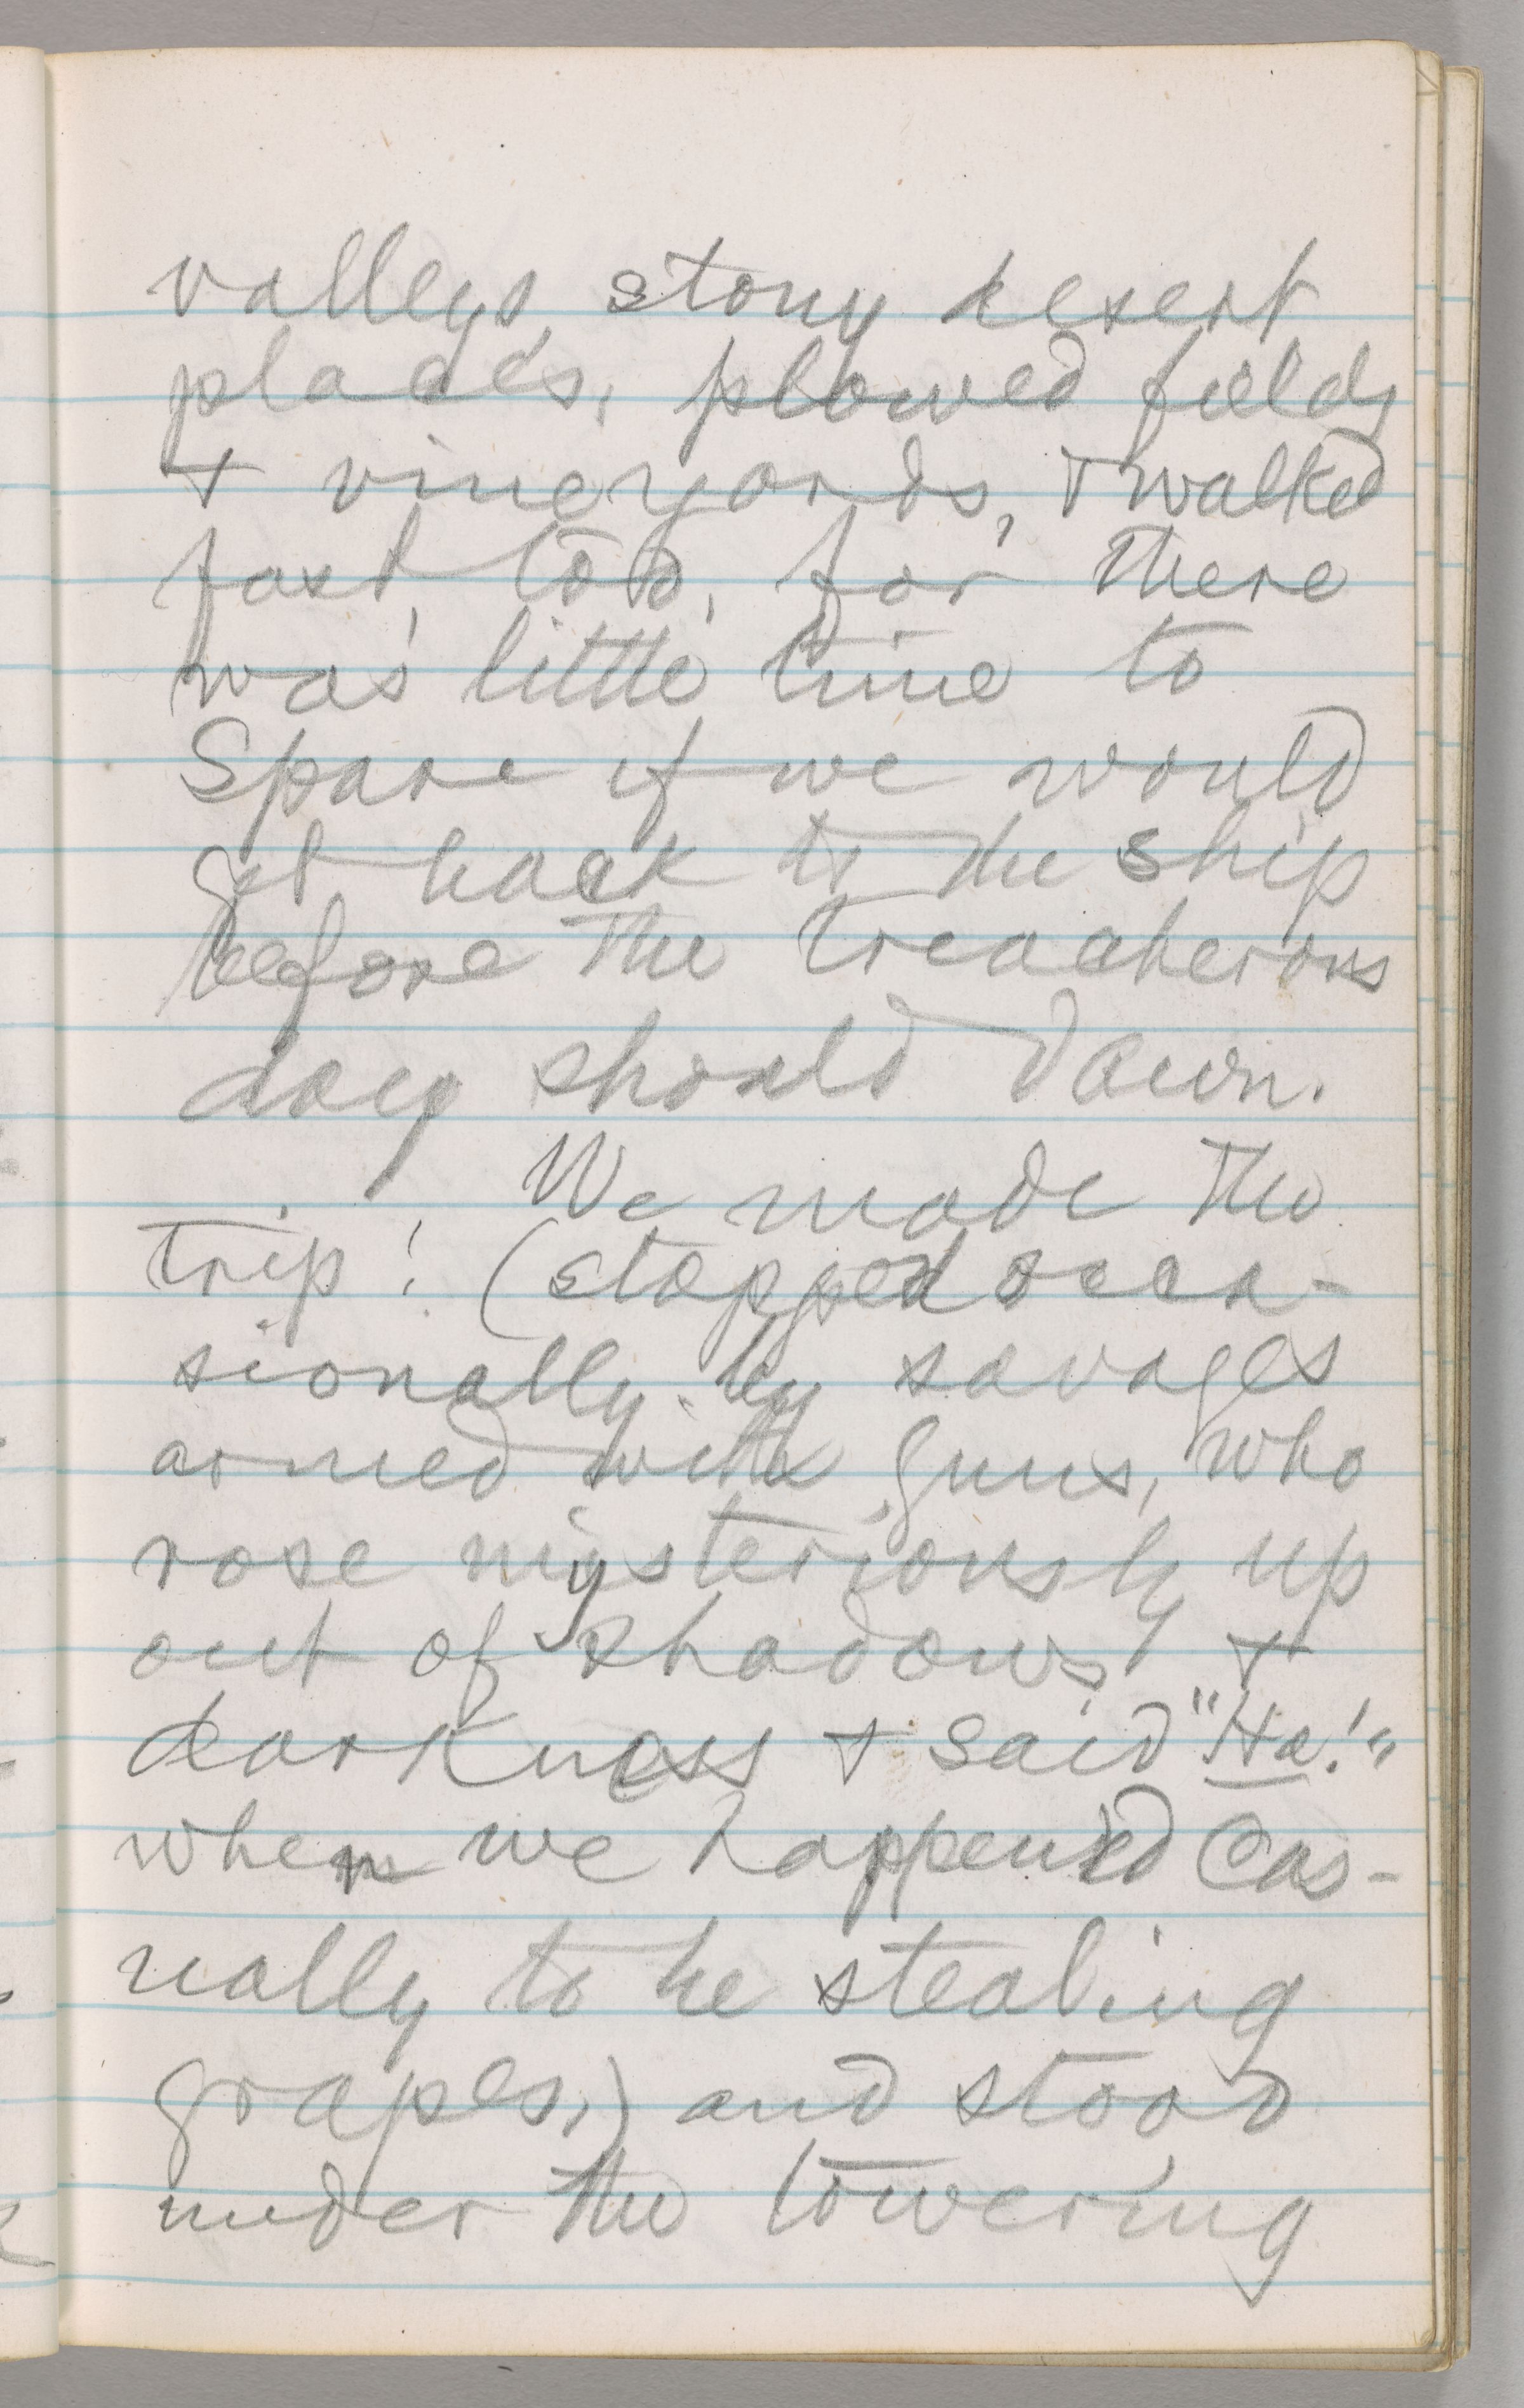 valleys, stony desert
places, plowed fields
& vineyards, & walked
fast, too, for there
was little time to
Spare if we would
get back to the ship
before the treacherous
day should dawn.
We made the
trip! (stopped occa-
sionally by savages
armed with guns, who
rose mysteriously up
out of shadows &
darkness & said "Ho!"
when we happened cas-
ually to be stealing
grapes,) and stood
under the towering